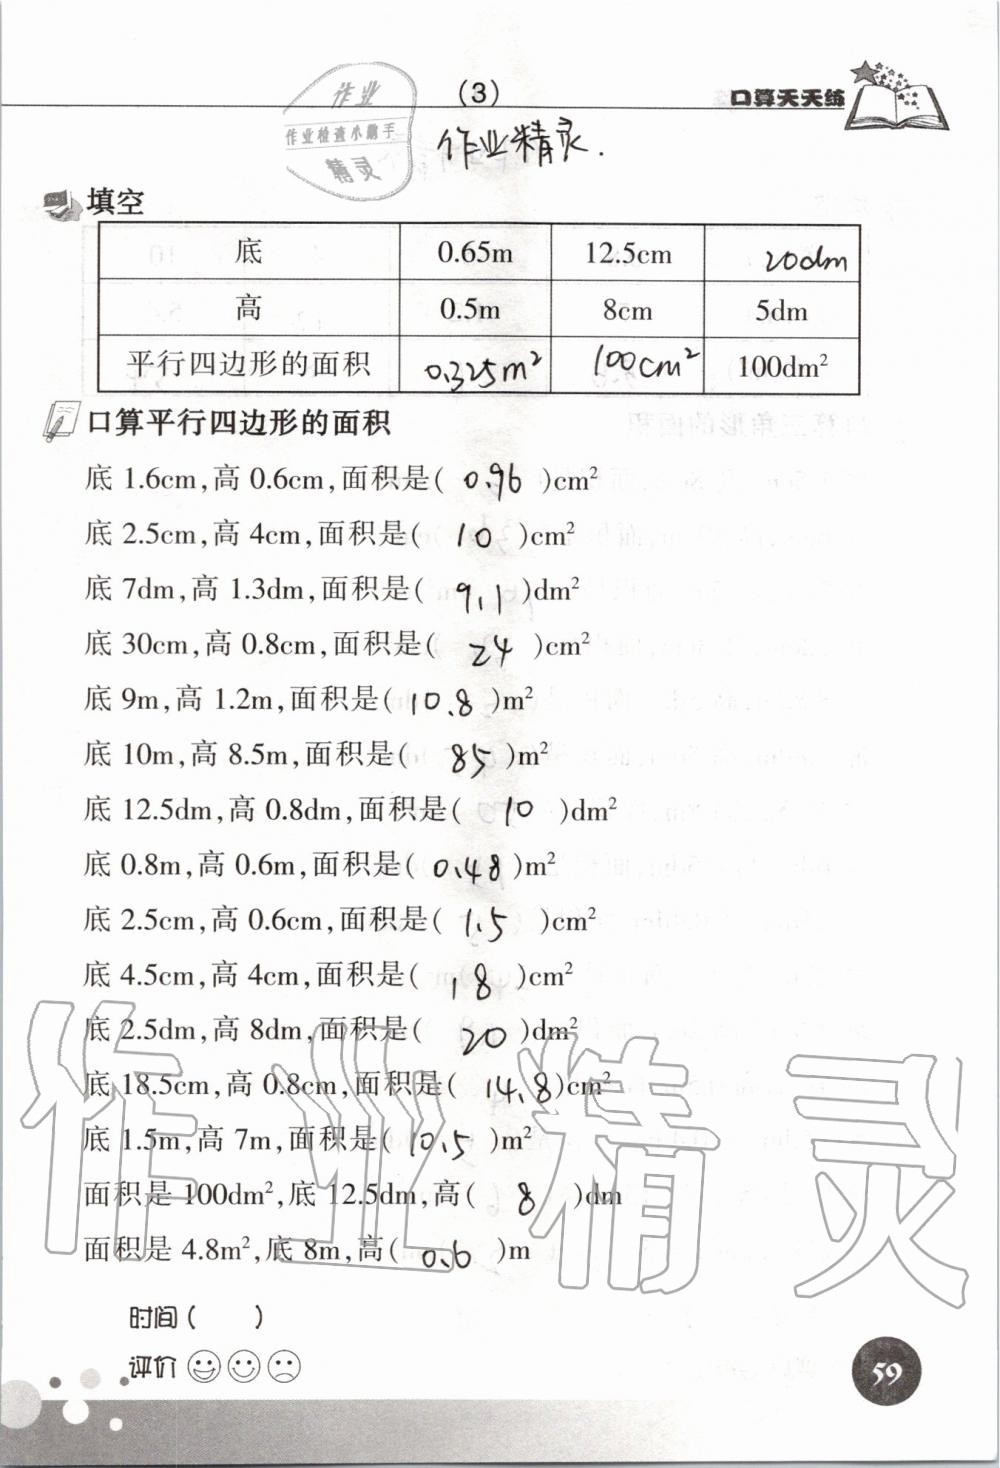 (3)
口算天天练
作业
作业检查小助手
精灵
作业精灵.
填空
底 0.65m 12.5cm 20dm
高 0.5m 8cm 5dm
平行四边形的面积 0.325m² 100cm² 100dm²
口算平行四边形的面积
底 1.6cm,高 0.6cm,面积是( 0.96 )cm²
底 2.5cm,高 4cm,面积是( 10 )cm²
底 7dm,高 1.3dm,面积是( 9.1 )dm²
底 30cm,高 0.8cm,面积是( 24 )cm²
底 9m,高 1.2m,面积是( 10.8 )m²
底 10m,高 8.5m,面积是( 85 )m²
底 12.5dm,高 0.8dm,面积是( 10 )dm²
底 0.8m,高 0.6m,面积是( 0.48 )m²
底 2.5cm,高 0.6cm,面积是( 1.5 )cm²
底 4.5cm,高 4cm,面积是( 18 )cm²
底 2.5dm,高 8dm,面积是( 20 )dm²
底 18.5cm,高 0.8cm,面积是( 14.8 )cm²
底 1.5m,高 7m,面积是( 10.5 )m²
面积是 100dm²,底 12.5dm,高( 8 )dm
面积是 4.8m²,底 8m,高( 0.6 )m
作业精灵
时间( )
评价
59